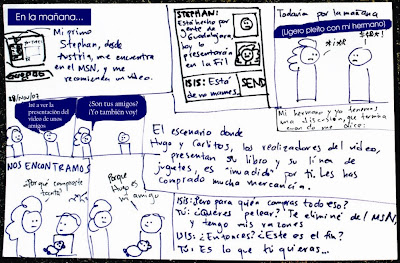 En la mañana...
Mi primo
Stephan, desde
Austria, me encuentra
en el MSN, y me
recomienda un video.
STEPHAN:
Está hecho por
gente de
Guadalajara,
hoy lo
presentarán
en la Fil
ISIS: Está
de no mames.
SEND
Todavía por la mañana
(Ligero pleito con mi hermano)
Mi hermano y yo tenemos
una discusión, que termina
cuando me dice:
28/nov/07
Iré a ver la
presentación del
video de unos
amigos
¿Son tus amigos?
¡Yo también voy!
El escenario donde
Hugo y Carlitos, los realizadores del video,
presentan su libro y su línea de
juguetes, es "invadido" por ti. Les has
comprado mucha mercancía.
NOS ENCONTRAMOS
¿Porqué compraste
tanto?
Porque
Hugo es
mi amigo
ISIS: ¿Pero para quién compras todo eso?
Tú: ¿Quieres pelear? Te eliminé del MSN,
y tengo mis razones
ISIS: ¿Entonces? ¿Este es el fin?
Tú: Es lo que tú quieras...